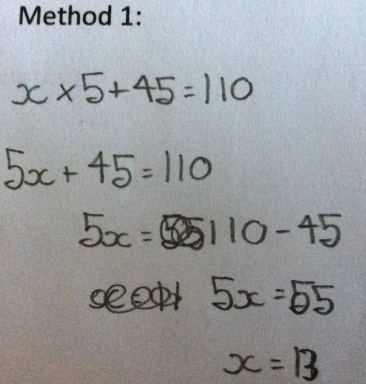 Method 1:
x × 5 + 45 = 110
5x + 45 = 110
5x = 110 - 45
5x = 65
x = 13